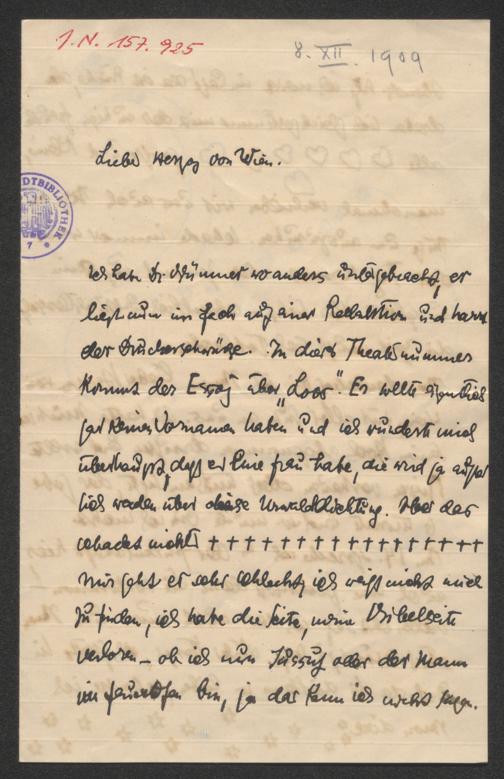 J. N. 157.925
8. XII. 1909
DTBIBLIOTHEK
Lieber Herzog von Wien.
ich habe Dr. wo anders untergebracht, er
liegt nun im Fach auf einer Redaktion und harrt
der Druckerschwärze. In diese Theaternummer
kommt der Essay über „Loos“. Er wollte eigentlich
gar keinen Vornamen haben und ich wunderte mich
überhaupt, daß er eine Frau habe, die wird ja außer
sich werden über diese Urwalddichtung. Aber das
schadet nichts ††††††††††††††††
Mir geht es sehr schlecht, ich weiß nicht mich
zu finden, ich habe die Seite, meine Bibelseite
verloren – ob ich nun Jussuf oder der Mann
im Feuerofen bin, ja das kann ich nicht sagen.